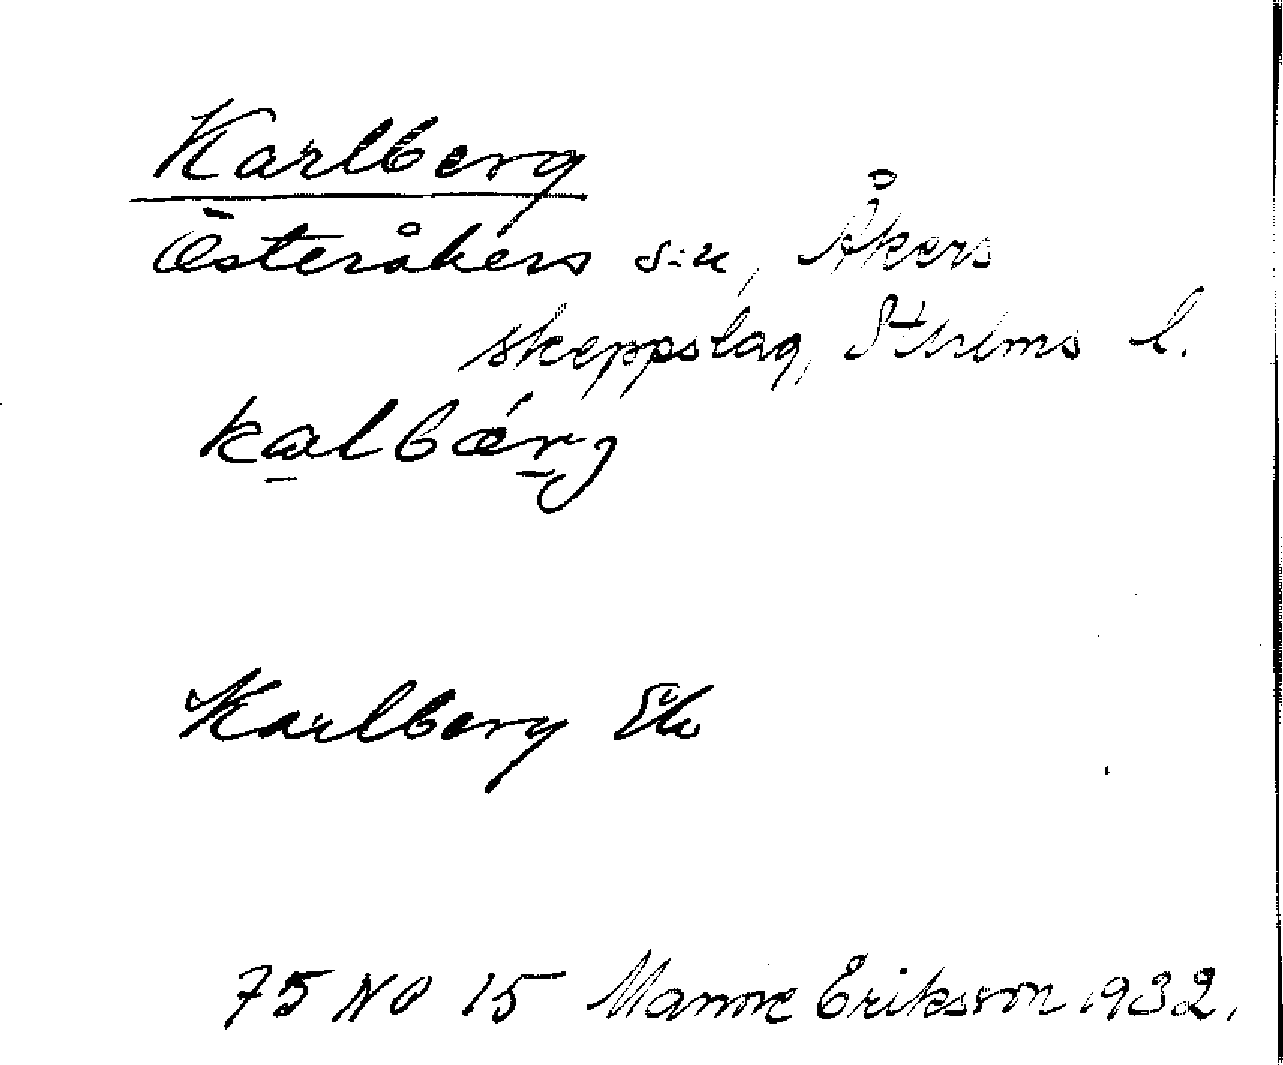 Karlberg
Österåkers s:n, Åkers
skeppslag, Sthlms l.
kalbærg
Karlberg Ek
75 NO 15 Manne Eriksson 1932.